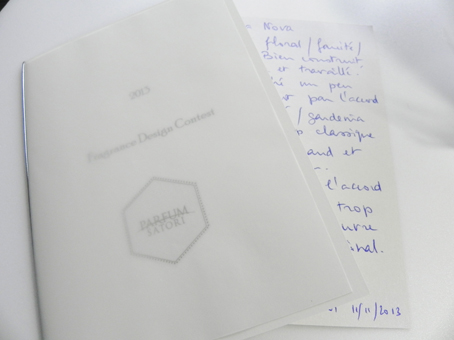 2013
Fragrance Design Contest
PARFUM
SATORI
Nova
floral/fruité/
Bien construit
et travaillé.
un peu
par l'accord
/gardenia
classique
and et
l'accord
trop
uvre
inal.
11/11/2013